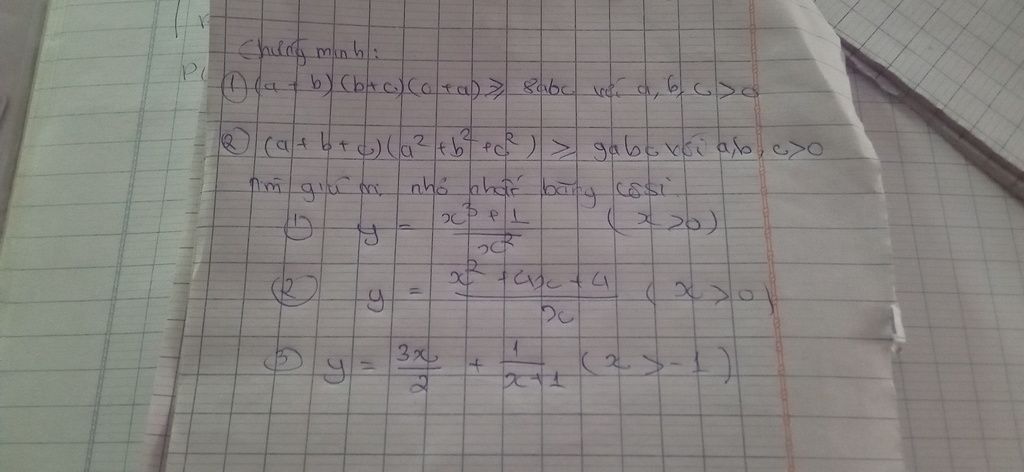 Chứng minh:
① (a + b) (b+c) (c+a) ≥ 8abc với a, b, c > 0
② (a + b + c) (a² + b² + c²) ≥ 9abc với a, b, c > 0
Tìm giá trị nhỏ nhất bằng côsi
① y = \frac{x³ + 1}{x²} (x > 0)
② y = \frac{x² + 4x + 4}{x} (x > 0)
③ y = \frac{3x}{2} + \frac{1}{x+1} (x > -1)